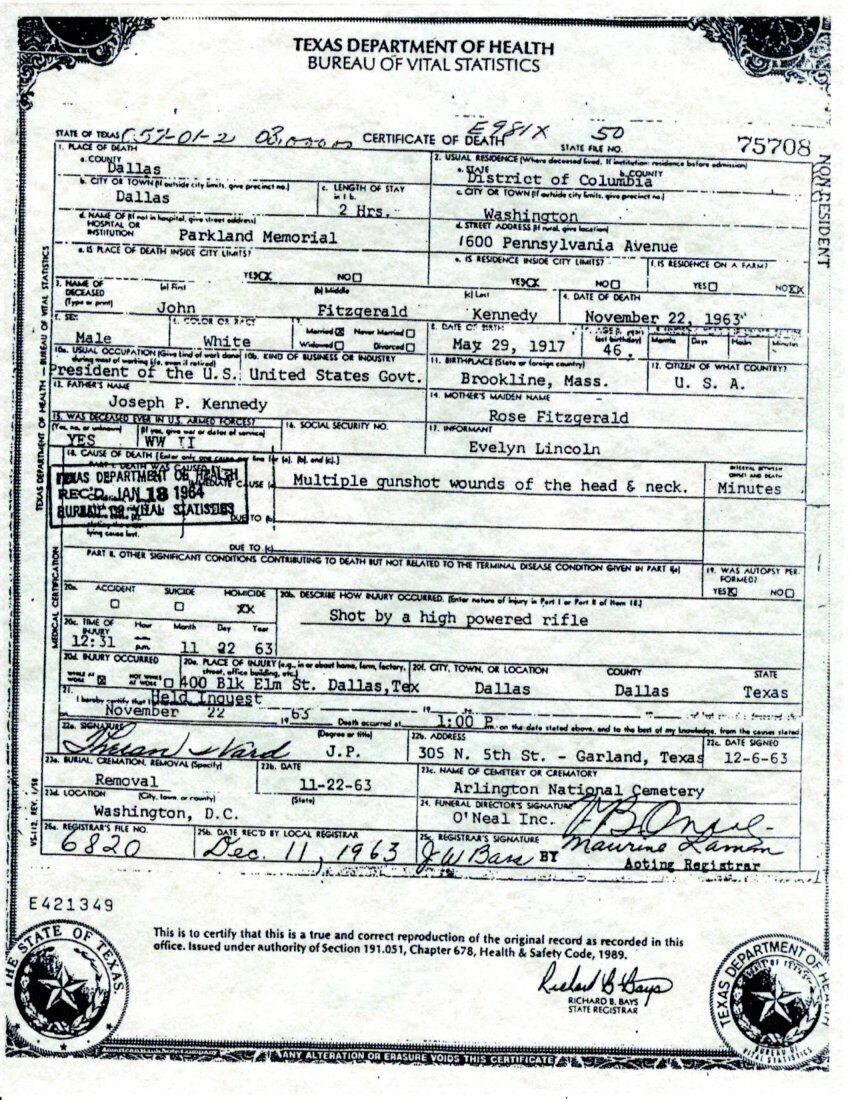 TEXAS DEPARTMENT OF HEALTH
BUREAU OF VITAL STATISTICS
STATE OF TEXAS CERTIFICATE OF DEATH E981X 50
STATE FILE NO. 75708
NON RESIDENT
1. PLACE OF DEATH
a. COUNTY
Dallas
2. USUAL RESIDENCE (Where deceased lived. If institution: residence before admission)
a. STATE b. COUNTY
District of Columbia
b. CITY OR TOWN (If outside city limits, give precinct no.)
Dallas
c. LENGTH OF STAY
in 1 b.
2 Hrs.
c. CITY OR TOWN (If outside city limits, give precinct no.)
Washington
d. NAME OF (If not in hospital, give street address)
HOSPITAL OR
INSTITUTION
Parkland Memorial
d. STREET ADDRESS (If rural, give location)
1600 Pennsylvania Avenue
e. IS PLACE OF DEATH INSIDE CITY LIMITS?
YES XX NO
e. IS RESIDENCE INSIDE CITY LIMITS?
YES XX NO
f. IS RESIDENCE ON A FARM?
YES NO XX
3. NAME OF
DECEASED
(Type or print)
(a) First
John
(b) Middle
Fitzgerald
(c) Last
Kennedy
4. DATE OF DEATH
November 22, 1963
5. SEX
Male
6. COLOR OR RACE
White
7. Married X Never Married
Widowed Divorced
8. DATE OF BIRTH
May 29, 1917
last birthday)
46
Months Days Hours Minutes
10a. USUAL OCCUPATION (Give kind of work done
during most of working life, even if retired)
President of the U.S.
10b. KIND OF BUSINESS OR INDUSTRY
United States Govt.
11. BIRTHPLACE (State or foreign country)
Brookline, Mass.
12. CITIZEN OF WHAT COUNTRY?
U. S. A.
13. FATHER'S NAME
Joseph P. Kennedy
14. MOTHER'S MAIDEN NAME
Rose Fitzgerald
15. WAS DECEASED EVER IN U.S. ARMED FORCES?
(Yes, no, or unknown) (If yes, give war or dates of service)
YES WW II
16. SOCIAL SECURITY NO.
17. INFORMANT
Evelyn Lincoln
18. CAUSE OF DEATH [Enter only one cause per line for (a), (b), and (c).]
PART I. DEATH WAS CAUSED
IMMEDIATE CAUSE (a) Multiple gunshot wounds of the head & neck.
INTERVAL BETWEEN
ONSET AND DEATH
Minutes
TEXAS DEPARTMENT OF HEALTH
REC'D JAN 18 1964
BUREAU OF VITAL STATISTICS
DUE TO (b)
lying cause last.
DUE TO (c)
PART II. OTHER SIGNIFICANT CONDITIONS CONTRIBUTING TO DEATH BUT NOT RELATED TO THE TERMINAL DISEASE CONDITION GIVEN IN PART I(a)
19. WAS AUTOPSY PER-
FORMED?
YES X NO
20a. ACCIDENT SUICIDE HOMICIDE
XX
20b. DESCRIBE HOW INJURY OCCURRED. (Enter nature of injury in Part I or Part II of item 18.)
Shot by a high powered rifle
20c. TIME OF
INJURY
Hour Month Day Year
12:31 p.m. 11 22 63
20d. INJURY OCCURRED
WHILE AT
WORK X
NOT WHILE
AT WORK
20e. PLACE OF INJURY (e.g., in or about home, farm, factory,
street, office building, etc.)
400 Blk Elm St. Dallas,Tex
20f. CITY, TOWN, OR LOCATION COUNTY STATE
Dallas Dallas Texas
21. I hereby certify that I
Held Inquest
November 22 1963 Death occurred at 1:00 P m. on the date stated above, and to the best of my knowledge, from the causes stated
22a. SIGNATURE (Degree or title)
Theran Ward J.P.
22b. ADDRESS
305 N. 5th St. - Garland, Texas
22c. DATE SIGNED
12-6-63
23a. BURIAL, CREMATION, REMOVAL (Specify)
Removal
23b. DATE
11-22-63
23c. NAME OF CEMETERY OR CREMATORY
Arlington National Cemetery
23d. LOCATION (City, town, or county) (State)
Washington, D.C.
24. FUNERAL DIRECTOR'S SIGNATURE
O'Neal Inc.
25a. REGISTRAR'S FILE NO.
6820
25b. DATE REC'D BY LOCAL REGISTRAR
Dec. 11, 1963
25c. REGISTRAR'S SIGNATURE
J W Bass BY
Acting Registrar
TEXAS DEPARTMENT OF HEALTH — BUREAU OF VITAL STATISTICS
MEDICAL CERTIFICATION
VS-112, REV. 1/58
E421349
This is to certify that this is a true and correct reproduction of the original record as recorded in this
office. Issued under authority of Section 191.051, Chapter 678, Health & Safety Code, 1989.
Richard B Bays
RICHARD B. BAYS
STATE REGISTRAR
THE STATE OF TEXAS
TEXAS DEPARTMENT OF HEALTH
BUREAU OF
VITAL STATISTICS
American Bank Note Company
ANY ALTERATION OR ERASURE VOIDS THIS CERTIFICATE